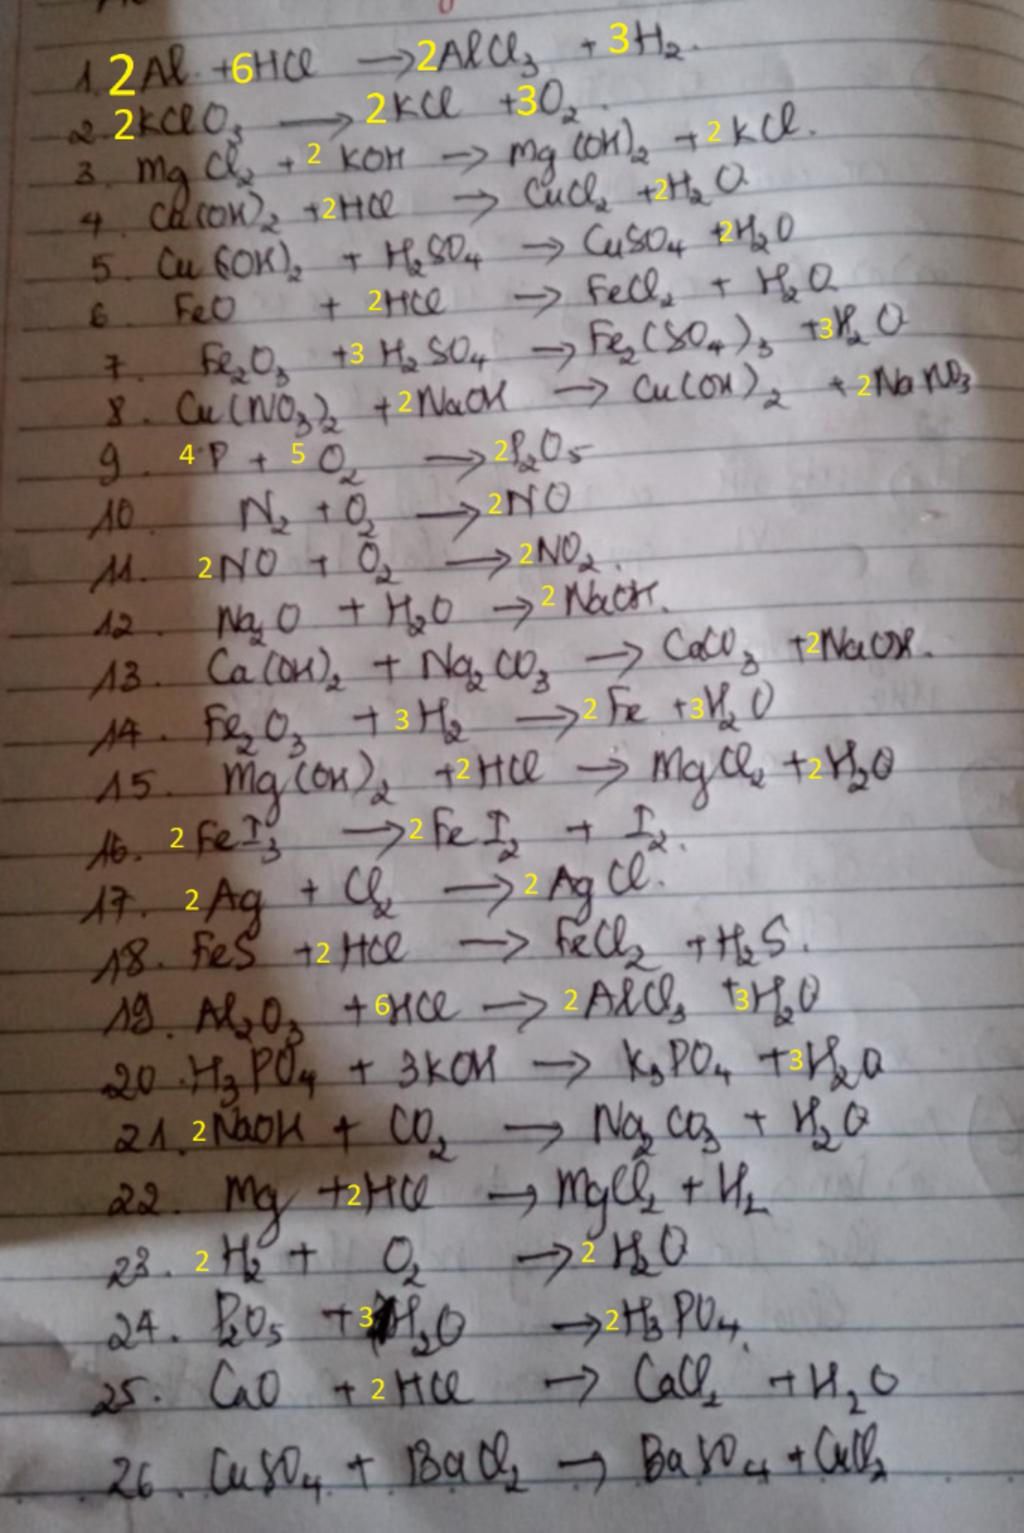 1. 2Al + 6HCl → 2AlCl3 + 3H2.
2. 2KClO3 → 2KCl + 3O2.
3. MgCl2 + 2 KOH → Mg(OH)2 + 2KCl.
4. Cu(OH)2 + 2HCl → CuCl2 + 2H2O
5. Cu(OH)2 + H2SO4 → CuSO4 + 2H2O
6 FeO + 2HCl → FeCl2 + H2O
7. Fe2O3 + 3 H2SO4 → Fe2(SO4)3 + 3H2O
8. Cu(NO3)2 + 2NaOH → Cu(OH)2 + 2NaNO3
9. 4 P + 5 O2 → 2P2O5
10. N2 + O2 → 2NO
11. 2NO + O2 → 2NO2.
12. Na2O + H2O → 2 NaOH.
13. Ca(OH)2 + Na2CO3 → CaCO3 + 2NaOH.
14. Fe2O3 + 3 H2 → 2 Fe + 3H2O
15. Mg(OH)2 + 2HCl → MgCl2 + 2H2O
16. 2 FeI3 → 2 FeI2 + I2.
17. 2 Ag + Cl2 → 2 AgCl.
18. FeS + 2HCl → FeCl2 + H2S.
19. Al2O3 + 6HCl → 2 AlCl3 + 3H2O
20. H3PO4 + 3KOH → K3PO4 + 3H2O
21. 2NaOH + CO2 → Na2CO3 + H2O
22. Mg + 2HCl → MgCl2 + H2
23. 2 H2 + O2 → 2 H2O
24. P2O5 + 3H2O → 2H3PO4.
25. CaO + 2HCl → CaCl2 + H2O
26. CuSO4 + BaCl2 → BaSO4 + CuCl2